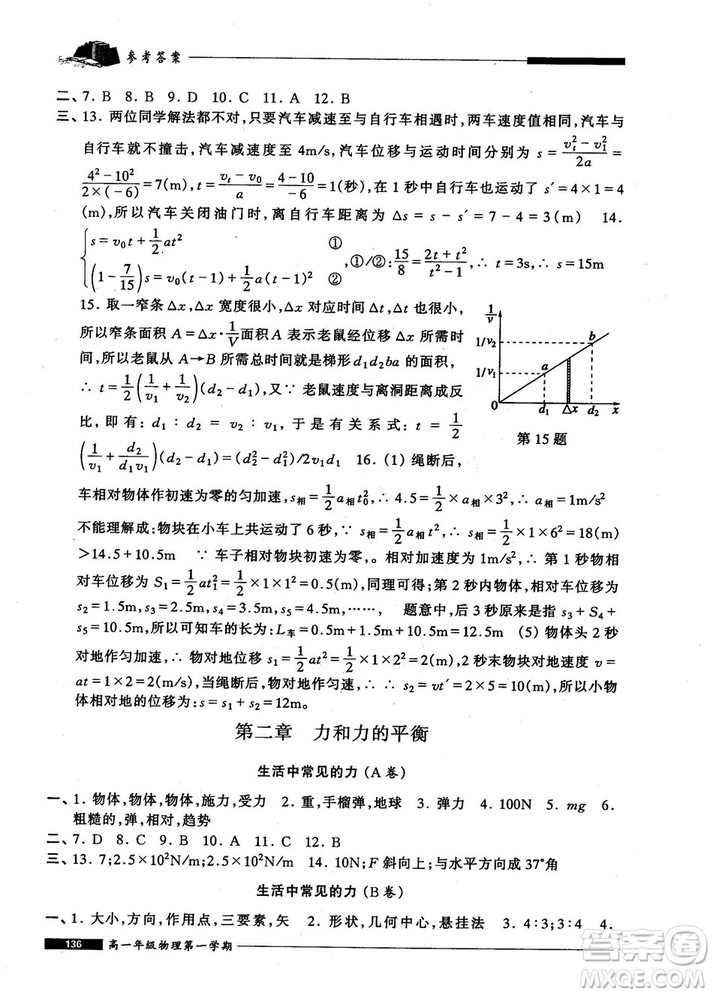 参考答案
二、7. B 8. B 9. D 10. C 11. A 12. B
三、13. 两位同学解法都不对,只要汽车减速至与自行车相遇时,两车速度值相同,汽车与
自行车就不撞击,汽车减速度至 4m/s,汽车位移与运动时间分别为 s = (v_t^2 − v_1^2)/2a =
(4^2−10^2)/(2×(−6)) = 7(m), t = (v_t − v_0)/a = (4−10)/−6 = 1(秒),在 1 秒中自行车行驶的距离 s′ = 4×1 = 4
(m),所以汽车关闭油门时,离自行车距离为 Δs = s − s′ = 7 − 4 = 3(m) 14.
{ s = v_0t + 1/2 at^2 ①
(1 − 7/15)s = v_0(t−1) + 1/2 a(t−1)^2 ② ,①/②: 15/8 = (2t + t^2)/(t^2 − 1),∴ t = 3s,s = 15m
15. 取一窄条 Δx,Δx 宽度很小,Δx 对应时间也很小,
所以窄条面积 A = Δx·1/V 面积 A 表示老鼠经位移 Δx 时间,
所以老鼠从 A→B 所需总时间就是梯形 d1d2ba 的面积,
∴ t = 1/2 (1/v1 + 1/v2)(d2 − d1),又∵ 老鼠速度与离洞距离成反
比,即有:d1 : d2 = v2 : v1,于是有关系式:t = 1/2
(1/v1 + d2/(d1v1))(d2 − d1) = (d2^2 − d1^2)/2v1d1 16. (1) 绳断后,
1/v
1/v2
1/v1
a
b
0 d1 Δx d2 x
第 15 题
车相对物体作初速为零的匀加速,s相 = 1/2 a相t_0^2,∴ 4.5 = 1/2 × a相 × 3^2,a相 = 1m/s^2
不能理解成:物块在小车上共运动了 6 秒,∵ s相 = 1/2 a相t^2,∴ s相 = 1/2 × 1 × 6^2 = 18(m)
>14.5 + 10.5m ∵ 车子相对物块初速为零,。相对加速度为 1m/s^2,∴ 第 1 秒物块相
对车位移为 S1 = 1/2 at_1^2 = 1/2 × 1 × 1^2 = 0.5(m),同理可得:第 2 秒内物体,相对车位移为
s2 = 1.5m,s3 = 2.5m,s4 = 3.5m,s5 = 4.5m,……, 题意中,后 3 秒原来是指 s3 + S4 +
s5 = 10.5m,所以可知车的长度:L车 = 0.5m + 1.5m + 10.5m = 12.5m (5) 物体头 2 秒
对地作匀加速,∴ 物对地位移为 s1 = 1/2 at^2 = 1/2 × 2 × 2^2 = 4(m),2 秒末物块速度 v =
at = 4(m/s),当绳断后,物对地作匀速运动,所以 s2 = vt′ = 4 × 2 = 8(m),所以小物
体相对地的位移为:s = s1 + s2 = 12m。
第二章 力和力的平衡
生活中常见的力(A卷)
一、1. 物体,物体,物体,施力,受力 2. 重,手榴弹,地球 3. 弹力 4. 100N 5. mg 6.
粗糙的,弹,相对,趋势
二、7. D 8. C 9. B 10. A 11. C 12. B
三、13. 7;2.5×10^2N/m;2.5×10^2N/m 14. 10N;F 斜向上;与水平方向成 37°角
生活中常见的力(B卷)
一、1. 大小,方向,作用点,三要素,矢 2. 形状,几何中心,悬挂法 3. 4:3;3:4 4.
136 高一年级物理第一学期